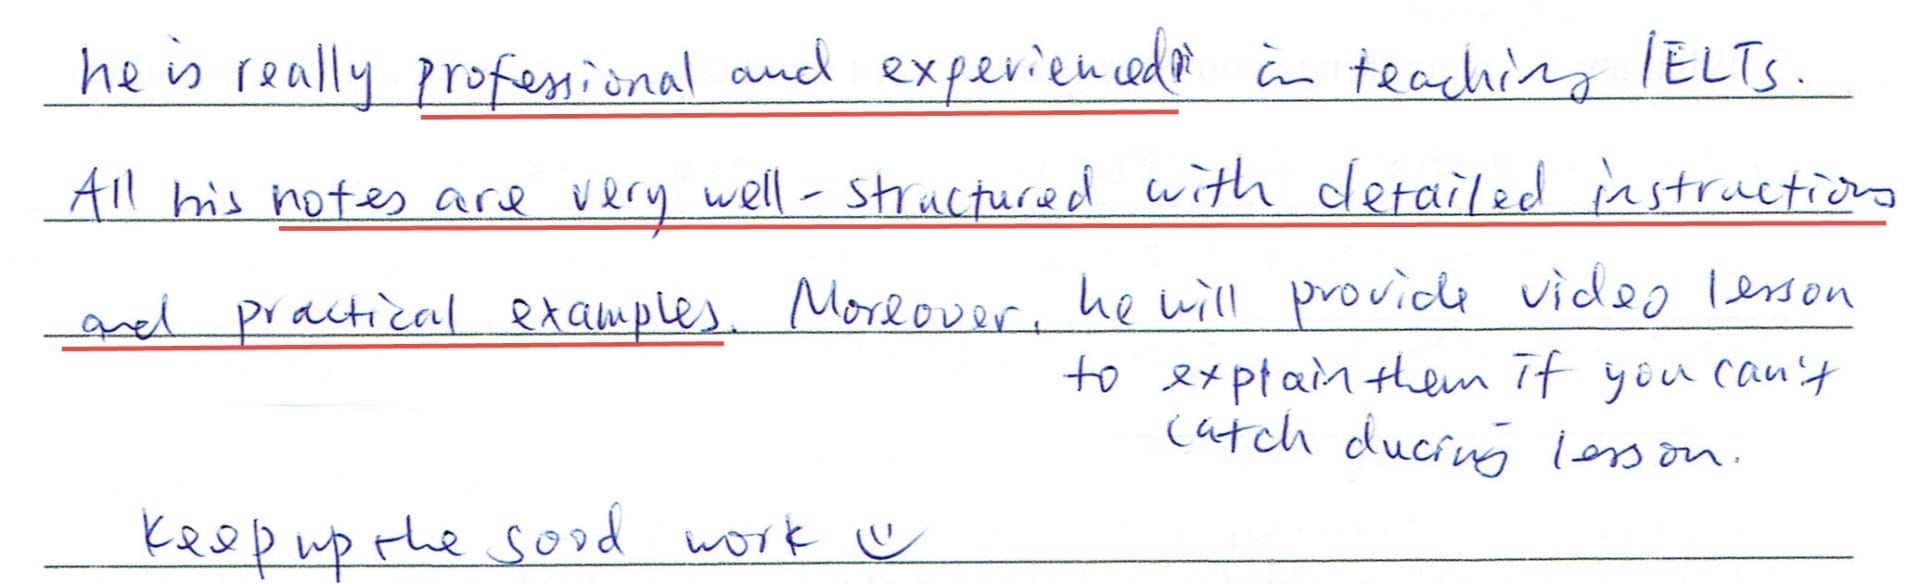 he is really professional and experienced in teaching IELTS.
All his notes are very well-structured with detailed instructions
and practical examples. Moreover, he will provide video lesson
to explain them if you can't
catch during lesson.
Keep up the good work